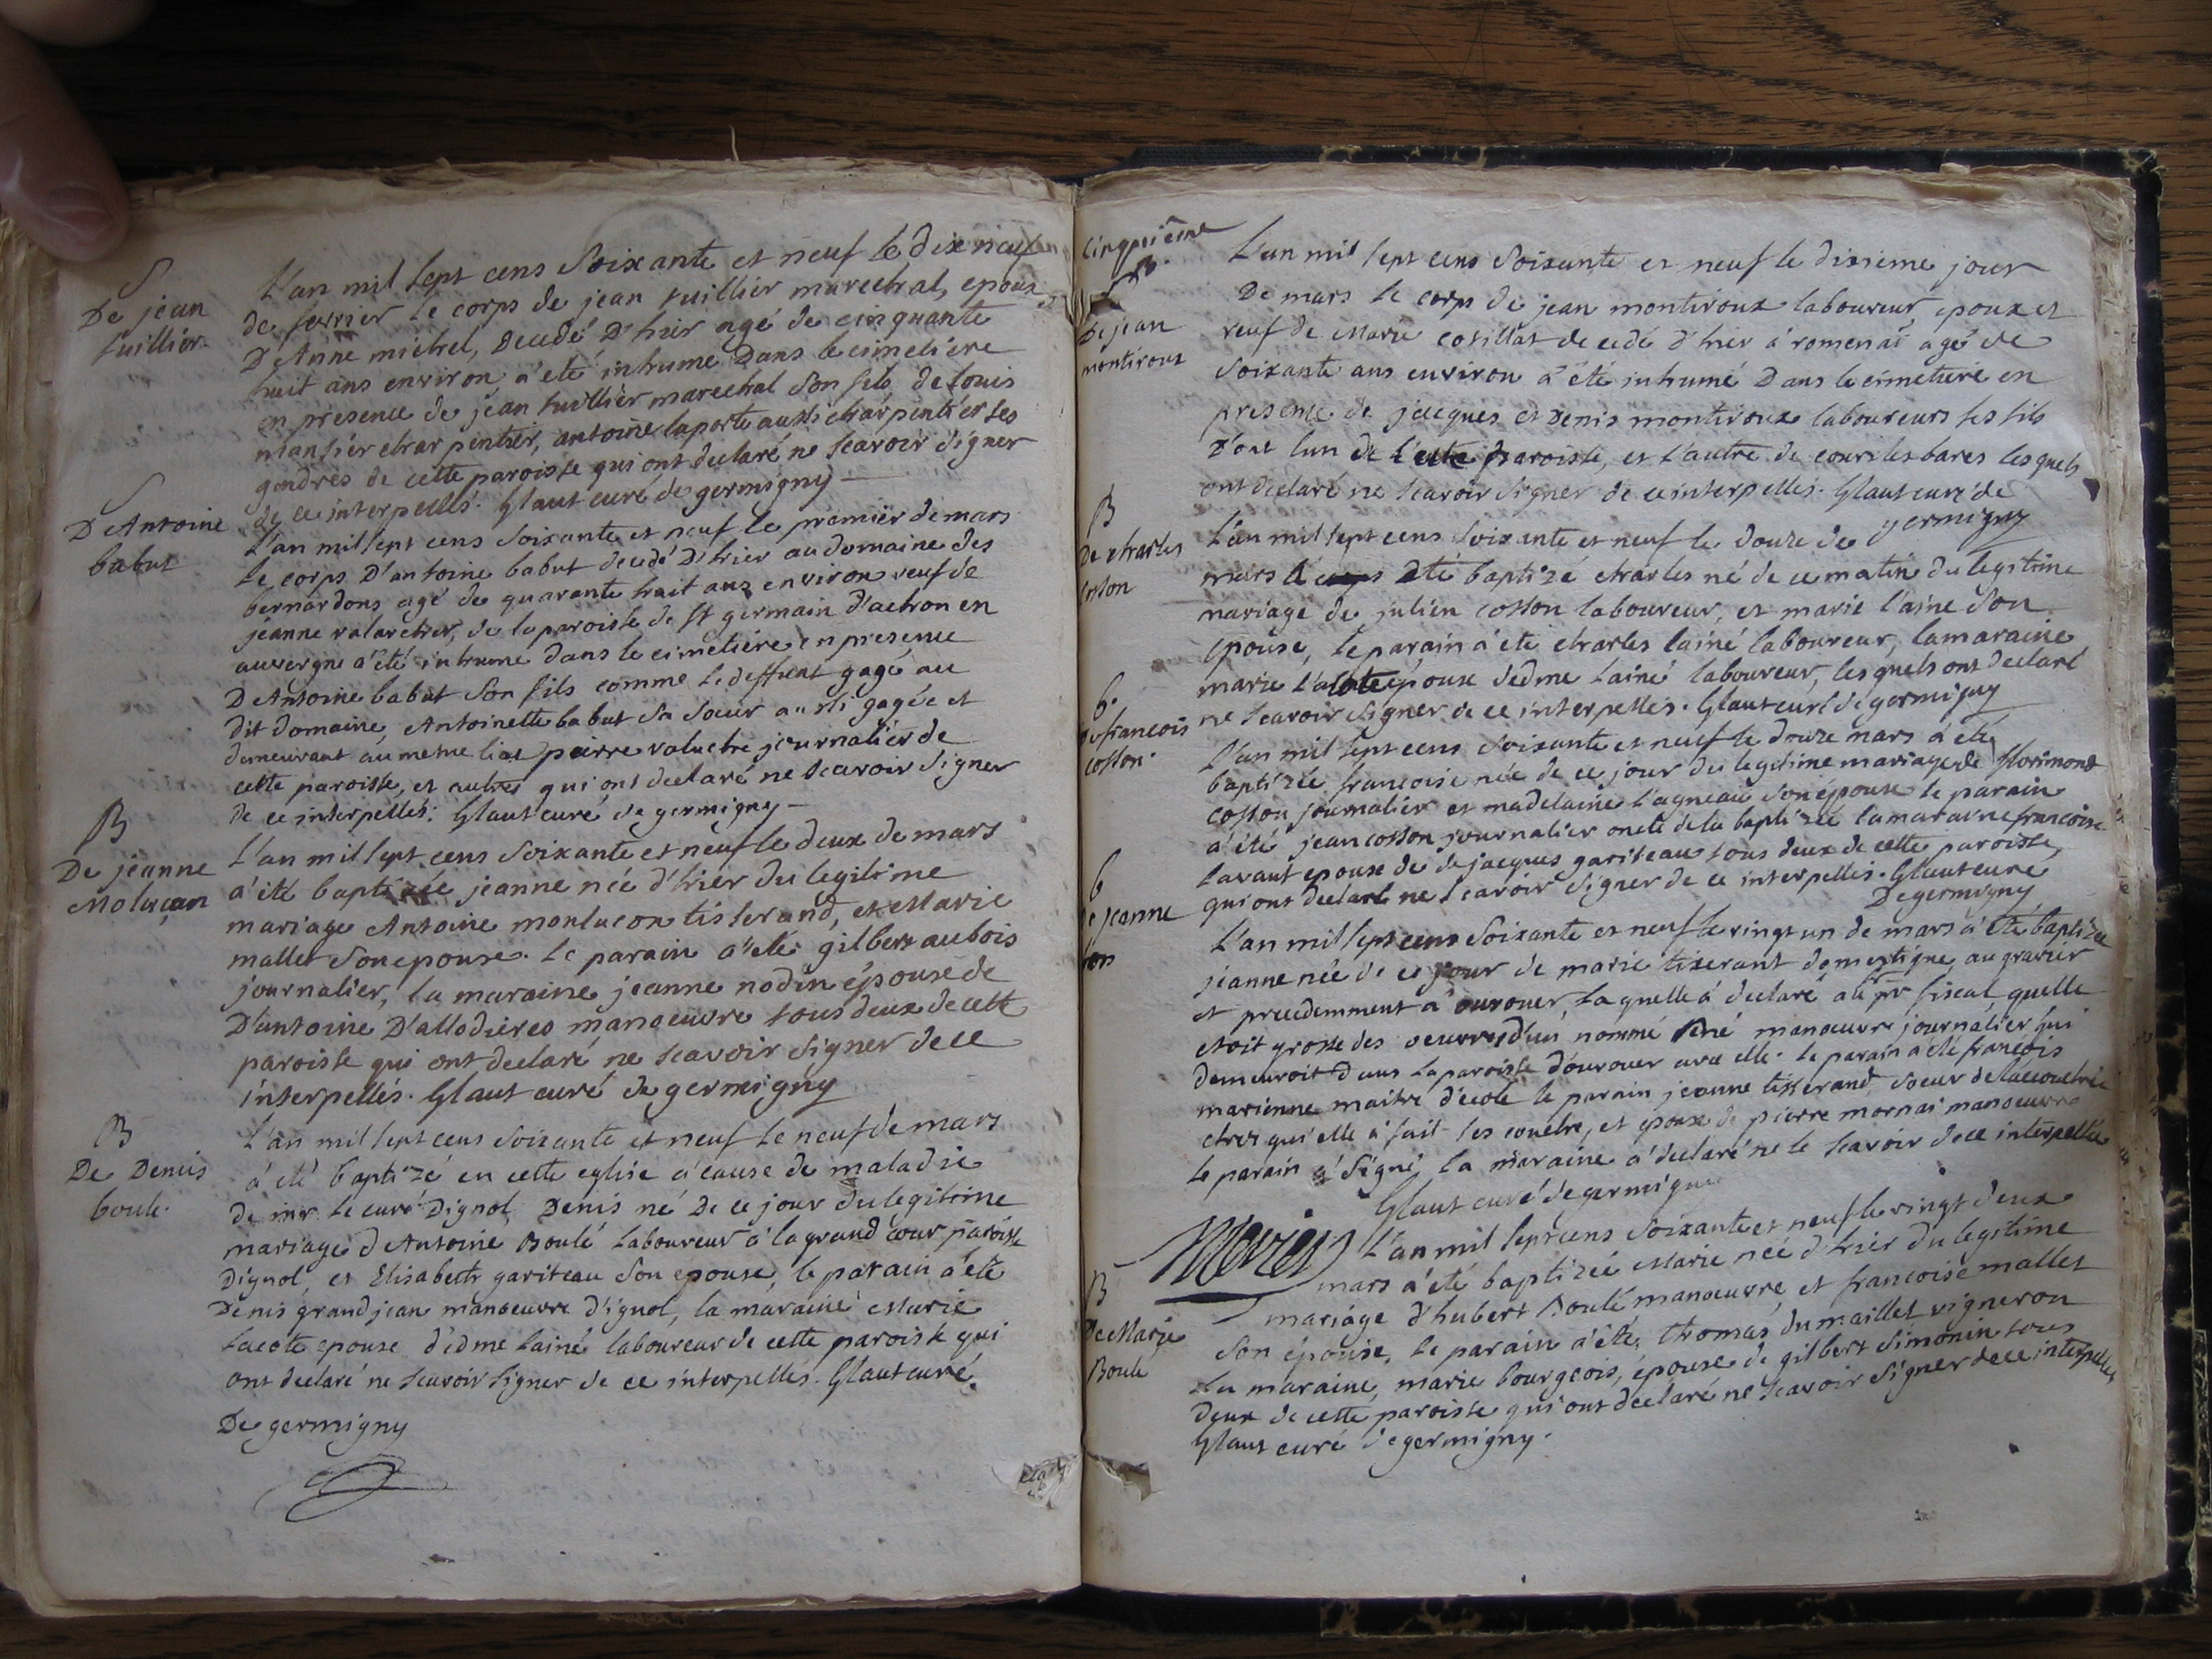 S
De jean
tuillier
L'an mil sept cens Soixante et neuf le dix neuf
de fevrier le corps de jean tuillier marechal, epoux
D'Anne michel, Decedé D'hier agé de cinquante
huit ans environ, a été inhumé Dans le cimetiere
en presence de jean tuillier marechal Son fils, de louis
mansier charpentier, antoine laporte aussi charpentier ses
gendres de cette paroisse qui ont declaré ne scavoir signer
de ce interpellés. Glaut curé de germigny
S
D'Antoine
babut
L'an mil sept cens Soixante et neuf le premier de mars
le corps D'antoine babut decedé D'hier au domaine des
bernardons agé de quarante huit ans environ veuf de
jeanne valarcher, de la paroisse de St germain d'
auvergne a été inhumé dans le cimetiere en presence
D'Antoine babut Son fils comme le deffunt gagé au
dit domaine, Antoinette babut Sa Soeur aussi gagée et
demeurant au meme lieu pierre valuche journalier de
cette paroisse, et autres qui ont declaré ne Scavoir Signer
de ce interpellés. Glaut curé de germigny
B
De jeanne
Moluçan
L'an mil sept cens Soixante et neuf le deux de mars
a'été baptizée jeanne née d'hier du legitime
mariage Antoine monlucon tisserand, et Marie
mallet Son epouse. le parain a'été gilbert aubois
journalier, la maraine jeanne nodin épouse de
D'antoine D'allodieres manoeuvre tous deux de cette
paroisse qui ont declaré ne scavoir signer de ce
interpellés. Glaut curé de germigny
B
De Denis
boulé.
L'an mil sept cens soixante et neuf le neuf de mars
a été baptizé en cette eglise a'cause de maladie
de mr le curé Dignol, Denis né De ce jour du legitime
mariage d'Antoine Boulé laboureur a la grand cour paroisse
Dignol, et Elisabeth gariteau Son epouse, le parain a'été
Denis grandjean manoeuvre d'ignol, la maraine Marie
lacote epouse d'edme lainé laboureur de cette paroisse qui
ont declaré ne scavoir signer de ce interpellés. Glaut curé
De germigny
Cinquième
De jean
montiroux
L'an mil sept cens Soixante et neuf le dixieme jour
De mars le corps de jean montiroux laboureur, epoux et
veuf de Marie cotillat decedé d'hier á romenai agé de
Soixante ans environ a'été inhumé Dans le cimetiere en
presence de jacques et Denis montiroux laboureurs ses fils
D'ont lun de cette paroisse, et l'autre de cours les bares lesquels
ont declaré ne scavoir signer de ce interpellés. Glaut curé de
germigny
B
De charles
Cosson
L'an mil sept cens soixante et neuf le douze de
mars a été baptizé charles né de ce matin du legitime
mariage de julien cosson laboureur, et marie l'aine Son
epouse, le parain a'été charles lainé laboureur, la maraine
marie lacote épouse d'edme lainé laboureur, lesquels ont declaré
ne scavoir signer de ce interpellés. Glaut curé de germigny
b.
De francois
cosson.
L'an mil sept cens soixante et neuf le douze mars a été
baptizée francoise née de ce jour du legitime mariage de florimond
cosson journalier et madelaine l'agneau Son épouse le parain
a'été jean cosson journalier oncle de la baptizée la maraine francoise
lavaut epouse de de jacques gariteau tous deux de cette paroisse,
qui ont declaré ne scavoir signer de ce interpellés. Glaut curé
De germigny
b
De jeanne
L'an mil sept cens Soixante et neuf le vingt un de mars a'été baptizée
jeanne née de ce jour de marie tixerant domestique au gravier
et precedemment a' ourouer, laquelle á declaré au pr fiscal quelle
etoit grosse des oeuvres d'un nommé réné manoeuvre journalier qui
demeuroit dans la paroisse d'ourouer avec elle. le parain a'été francois
marienne maitre d'école la jeanne tixerand soeur de l'accouchée
chez qui elle a'fait ses couche, et epouse de pierre mornai manoeuvre
le parain a'signé, la maraine a'declaré ne le scavoir de ce interpellée
Glaut curé de germigny
B
De Marie
Boulé
L'an mil sept cens soixante et neuf le vingt deux
mars a'été baptizée Marie née d'hier du legitime
mariage d'hubert Boulé manoeuvre, et francoise mallet
Son épouse, le parain a'été, thomas dumaillet vigneron
la maraine, marie bourgeois, épouse de gilbert Simonin tous
deux de cette paroisse qui ont declaré ne scavoir signer de ce interpellés
Glaut curé de germigny.